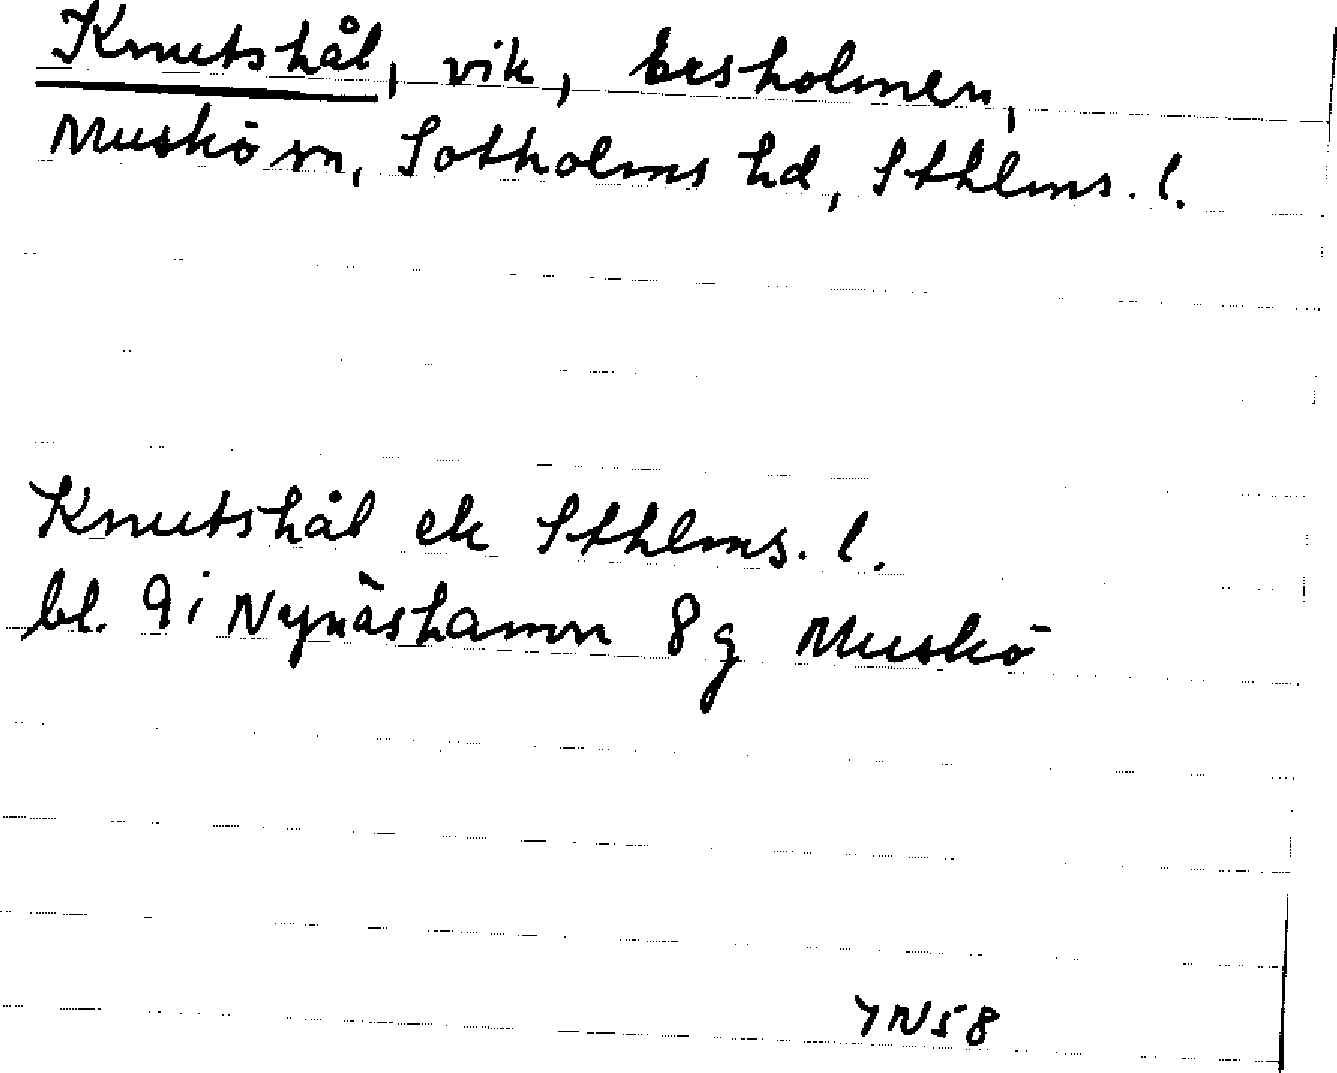 Knutshål, vik, Ersholmen,
Muskö sn, Sotholms hd, Sthlms. l.
Knutshål ek Sthlms. l.
bl. 9i Nynäshamn 8g Muskö
YN58